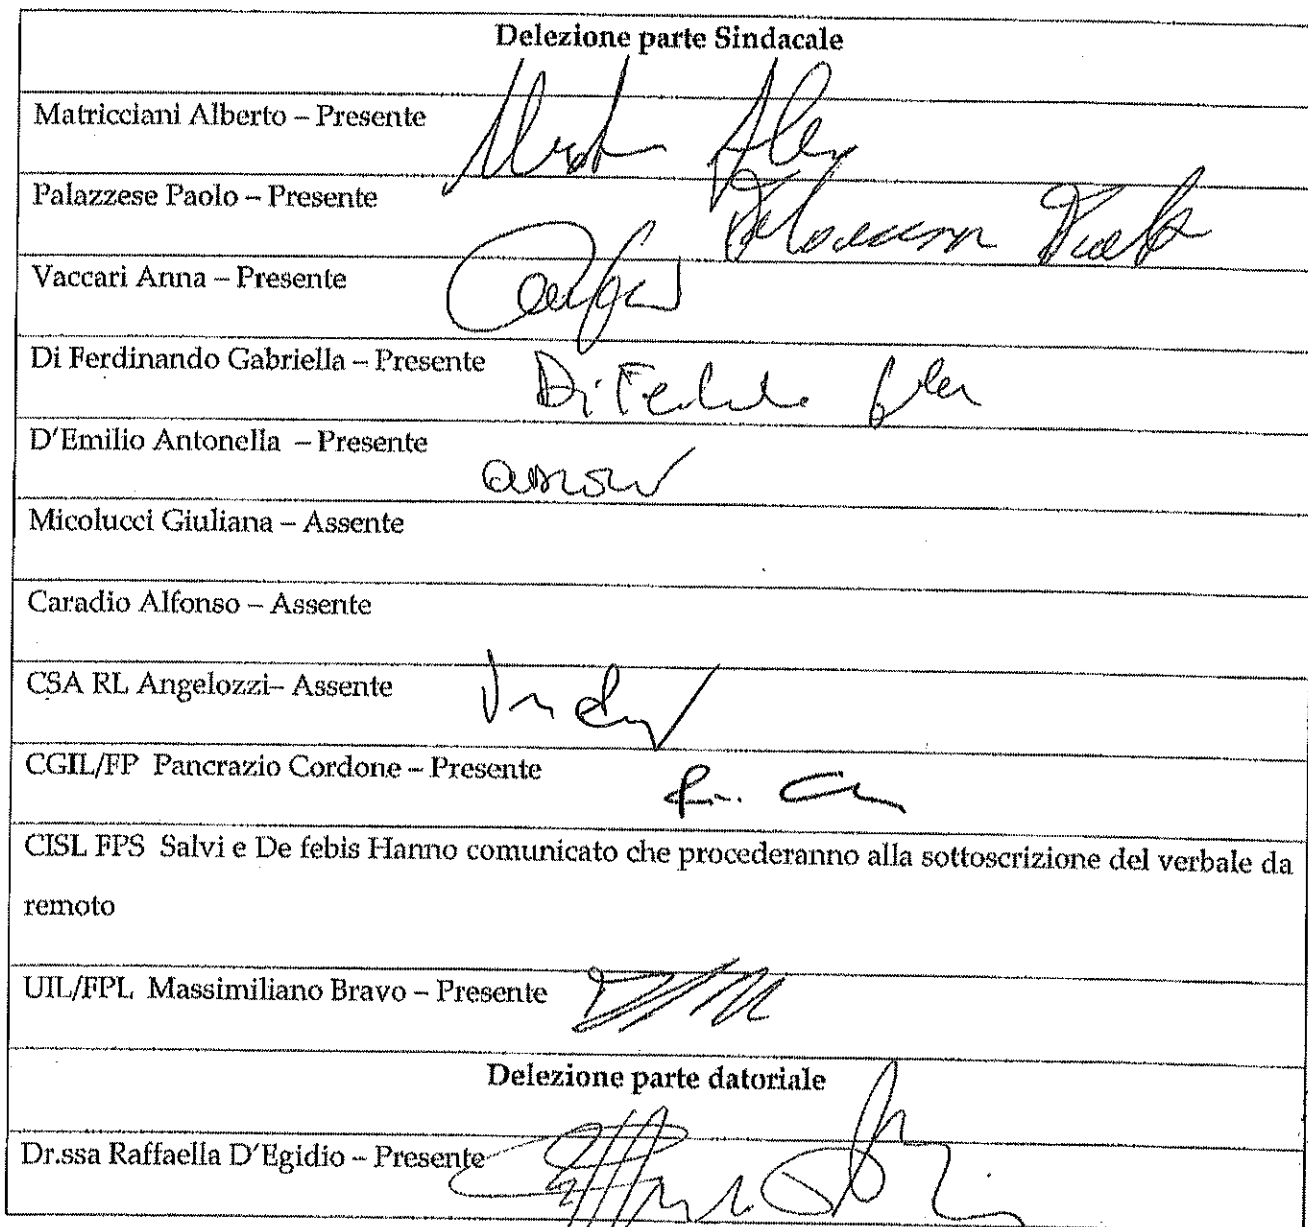 Delezione parte Sindacale
Matricciani Alberto – Presente
Palazzese Paolo – Presente
Vaccari Anna – Presente
Di Ferdinando Gabriella – Presente
D'Emilio Antonella – Presente
Micolucci Giuliana – Assente
Caradio Alfonso – Assente
CSA RL Angelozzi– Assente
CGIL/FP Pancrazio Cordone – Presente
CISL FPS Salvi e De febis Hanno comunicato che procederanno alla sottoscrizione del verbale da
remoto
UIL/FPL Massimiliano Bravo – Presente
Delezione parte datoriale
Dr.ssa Raffaella D'Egidio – Presente